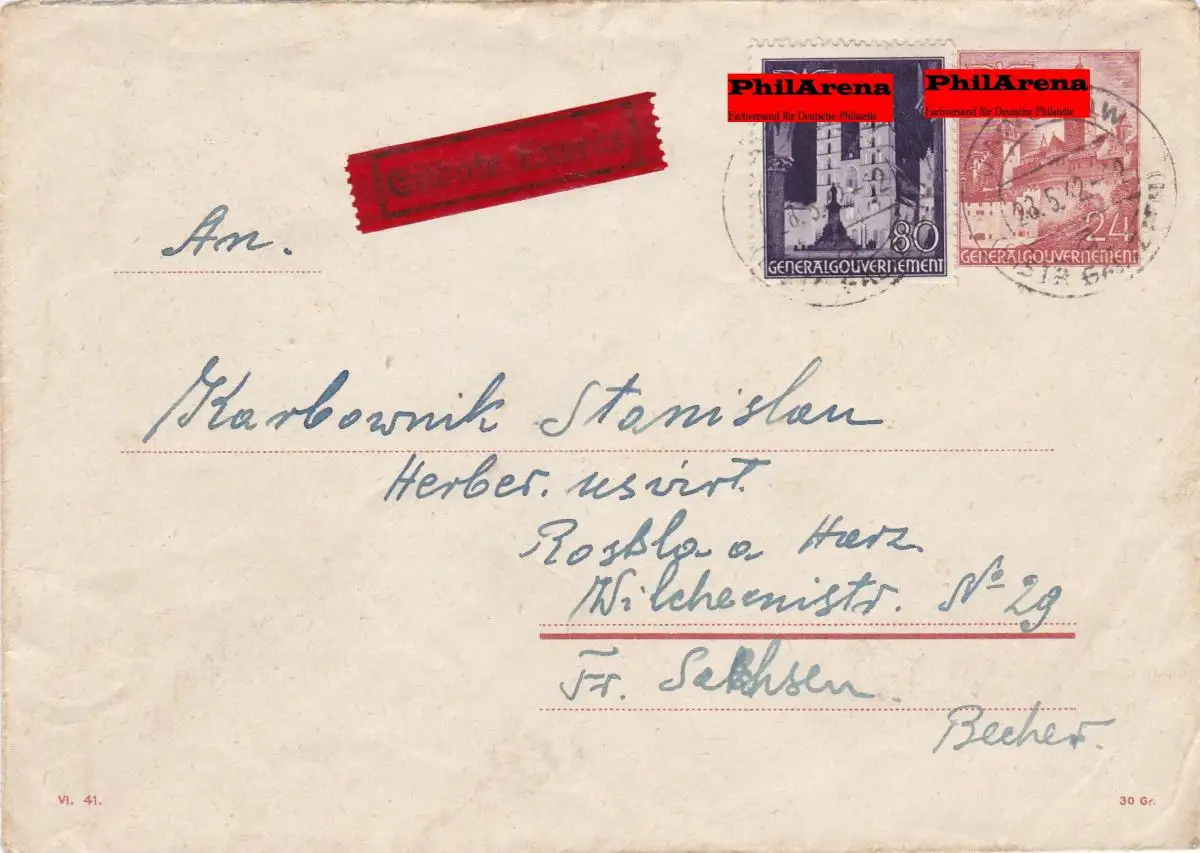 PhilArena
Fachversand für Deutsche Philatelie
PhilArena
Fachversand für Deutsche Philatelie
Eilbote Exprès
80
GENERALGOUVERNEMENT
24
GENERALGOUVERNEMENT
28.5.42
An.
Karbownik Stanislau
Herber. uswirt.
Rosßla a Harz
Wilchemistr. No 29
Fr. Sachsen.
Becher.
VI. 41.
30 Gr.